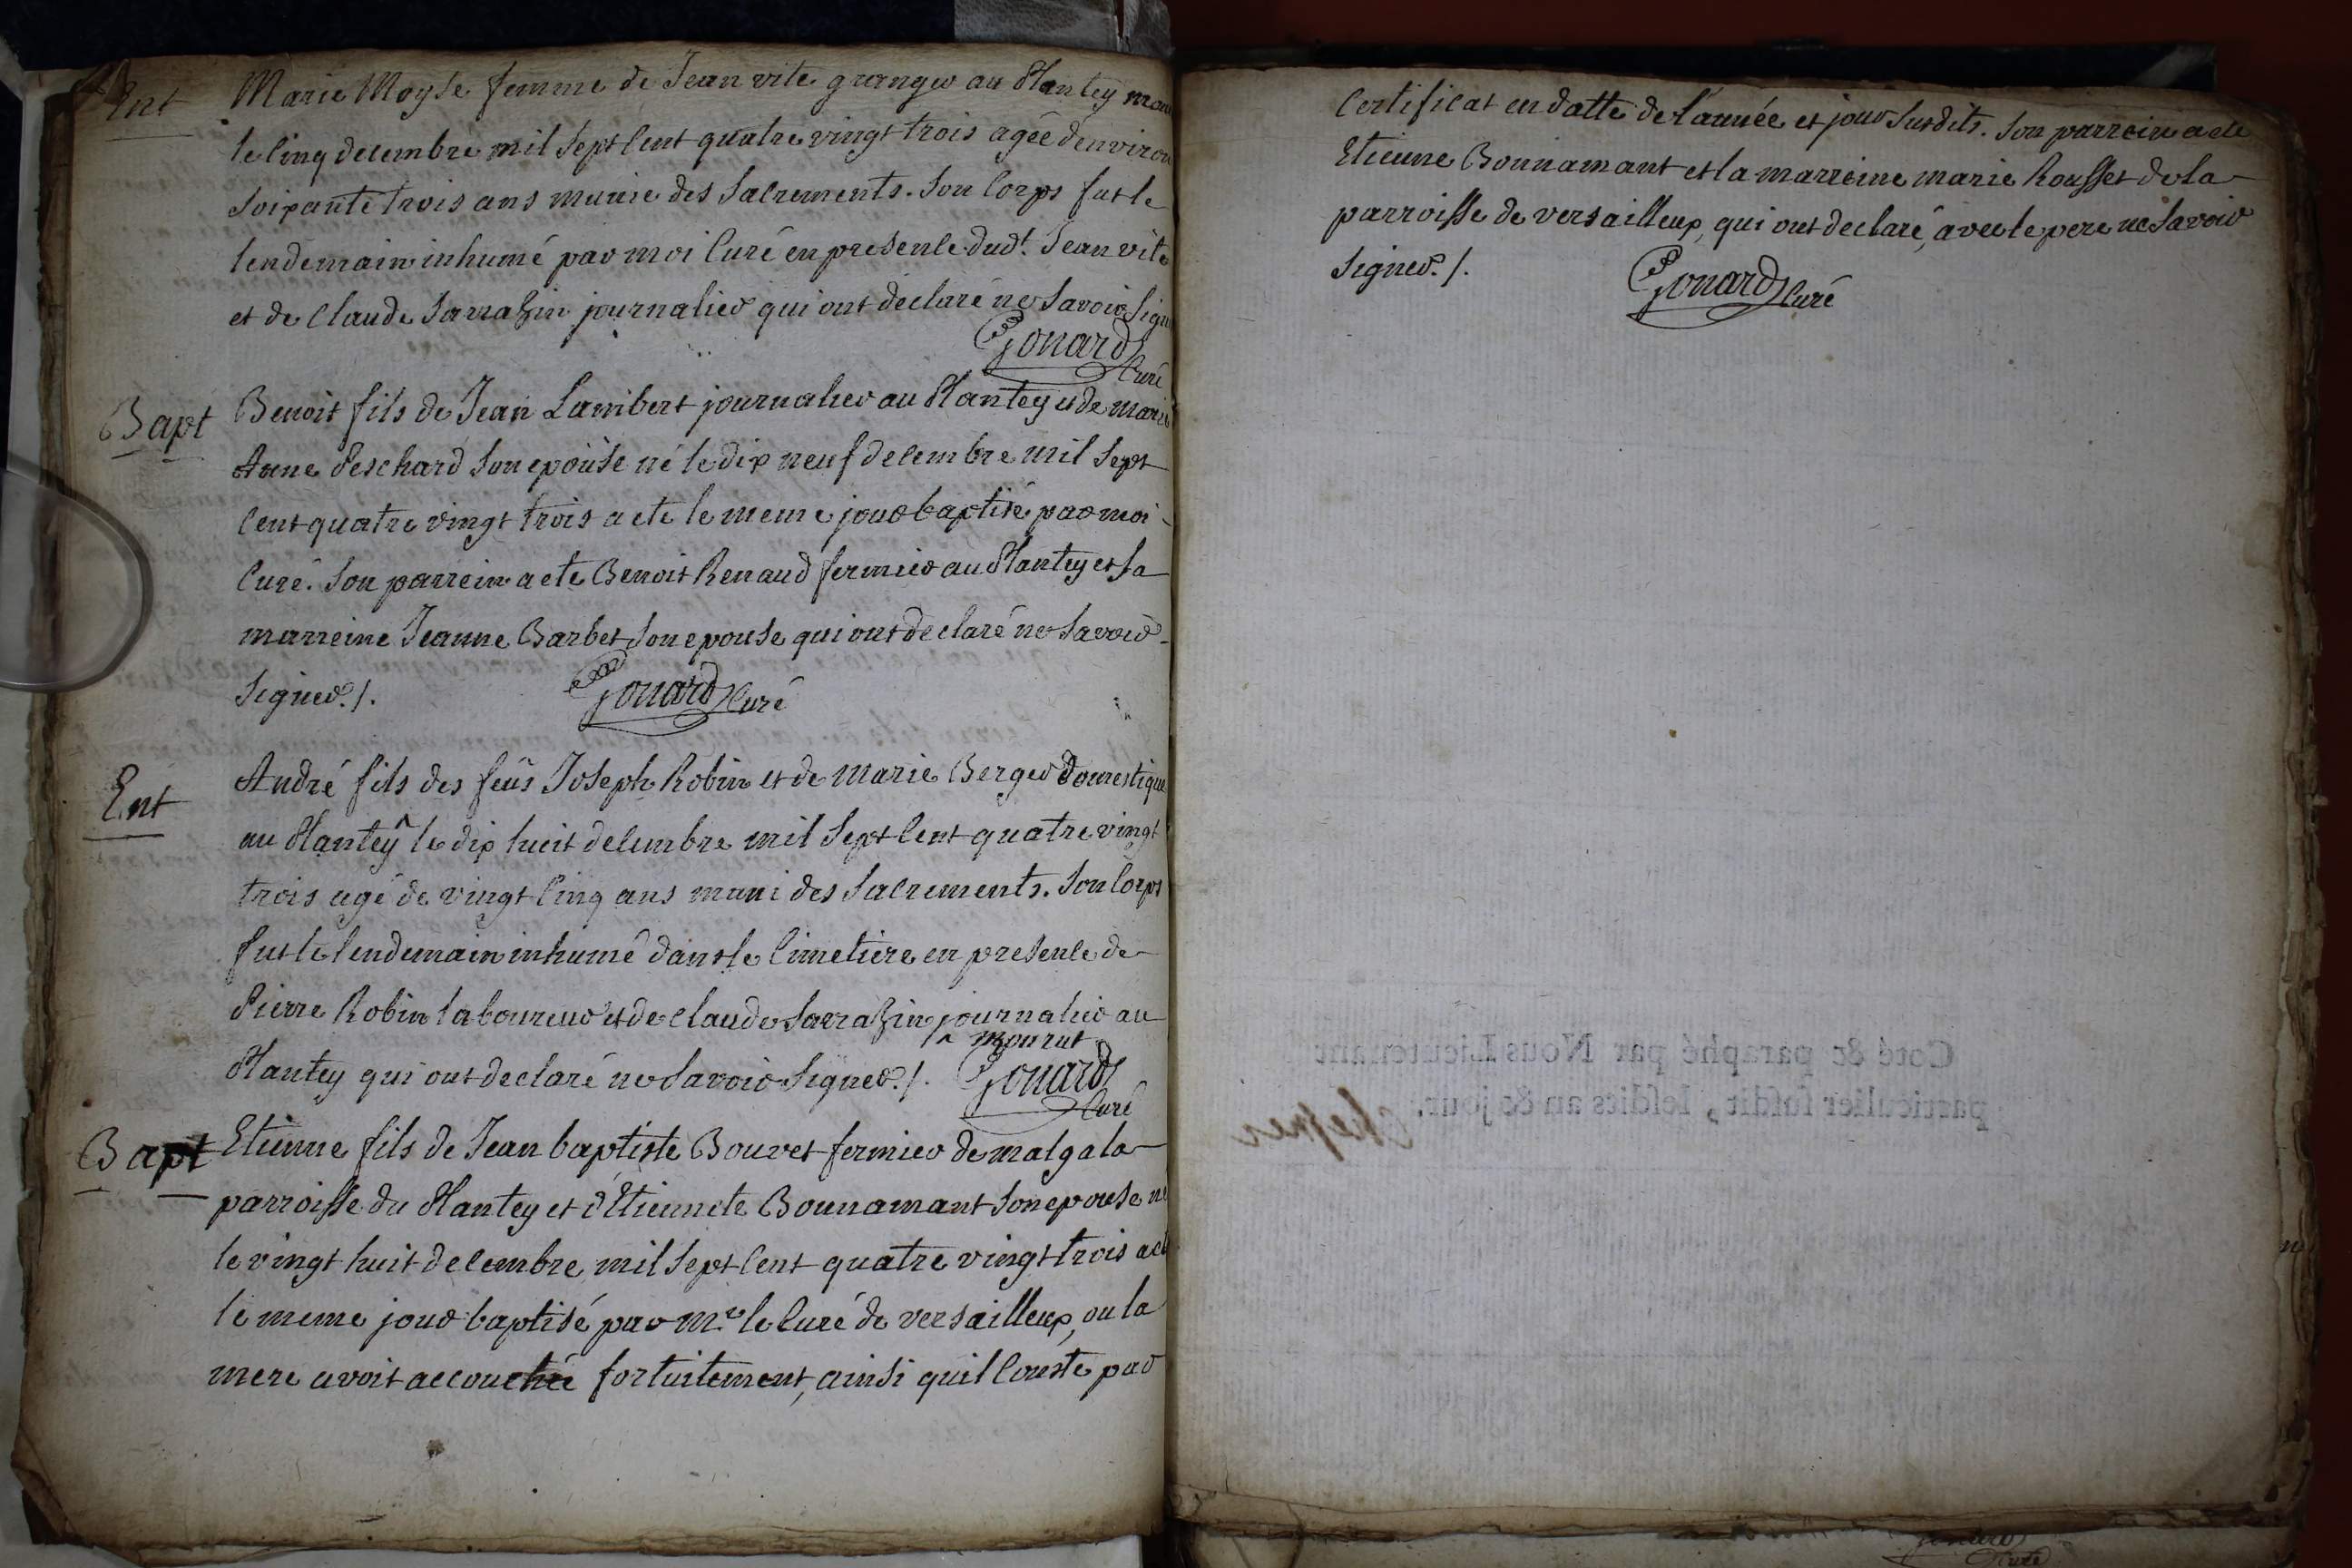 Ent
Marie Moyse femme de Jean vite granger au Plantey mou
le cinq decembre mil sept cent quatre vingt trois agée denviron
soixante trois ans munie des sacrements. son corps fut le
lendemain inhumé par moi curé en presence dud.t Jean vite
et de claude Sarrazin journalier qui ont declaré ne savoir sign
Gonard
Curé
Bapt
Benoit fils de Jean Lambert journalier au Plantey et de marie
Anne Peschard son epouse né le dix neuf decembre mil sept
cent quatre vingt trois a eté le meme jour baptisé par moi
curé. Son parrein a eté Benoit Renaud fermier au Plantey et sa
marreine Jeanne Barbet son epouse qui ont declaré ne savoir
signer./.
Gonard Curé
Ent
André fils des feüs Joseph Robin et de marie Berger domestique
au Plantey ^ le dix huit decembre mil sept cent quatre vingt
trois agé de vingt cinq ans muni des sacrements. Son corps
fut le lendemain inhumé dans le cimetiere en presence de
Pierre Robin laboureur et de claude Sarrazin journalier au
^ mourut
Plantey qui ont declaré ne savoir signer./.
Gonard
Curé
Bapt
Etienne fils de Jean baptiste Bouvet fermier de malgala
parroisse du Plantey et d'Etiennete Bonnamant son epouse né
le vingt huit decembre mil sept cent quatre vingt trois a eté
le meme jour baptisé par m.r le curé de versailleux, ou la
mere avoit accouchée fortuitement, ainsi quil conste par
Certificat en datte de l'année et jour susdits. Son parrein a eté
Etienne Bonnamant et la marreine marie Rousset de la
parroisse de versailleux, qui ont declaré, avec le pere ne savoir
signer./.
Gonard Curé
Coté & paraphé par Nous Lieutenant
particulier susdit, lesdits an & jour.